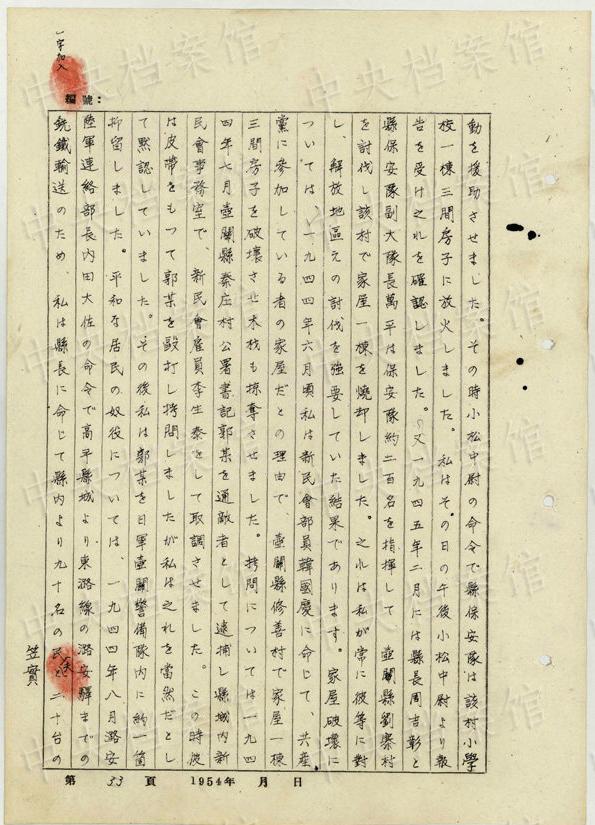 一字加入
編號：
動を援助させました。その時小松中尉の命令で縣保安隊は該村小學
校一棟三間房子に放火しました。私はその日の午後小松中尉より報
告を受け之れを確認しました。又一九四五年二月には縣長周吉彰と
縣保安隊副大隊長萬平は保安隊約二百名を指揮して壺關縣劉寨村
を討伐し該村で家屋一棟を燒却しました。之れは私が常に彼等に對
し、解放地區えの討伐を強要していた結果であります。家屋破壞に
ついては、一九四四年六月頃私は新民會部員韓國慶に命じて、共産
黨に參加している者の家屋だとの理由で、壺關縣修善村で家屋一棟
三間房子を破壞させ木材も掠奪させました。拷問については一九四
四年七月壺關縣秦庄村公署書記郭某を通敵者として逮捕し縣城内新
民會事務室で、新民會雇員李生泰をして取調させました。この時彼
は皮帶をもつて郭某を毆打し拷問しましたが私は之れを當然だとし
て默認していました。その後私は郭某を日軍壺關警備隊内に約一箇
抑留しました。平和な居民の奴役については、一九四四年八月潞安
陸軍連絡部長内田大佐の命令で高平縣城より東潞線の潞安驛までの
銑鐵輸送のため、私は縣長に命じて縣内より九十名の民と二十台の
笠實
第 33 頁 1954年 月 日
中央档案馆